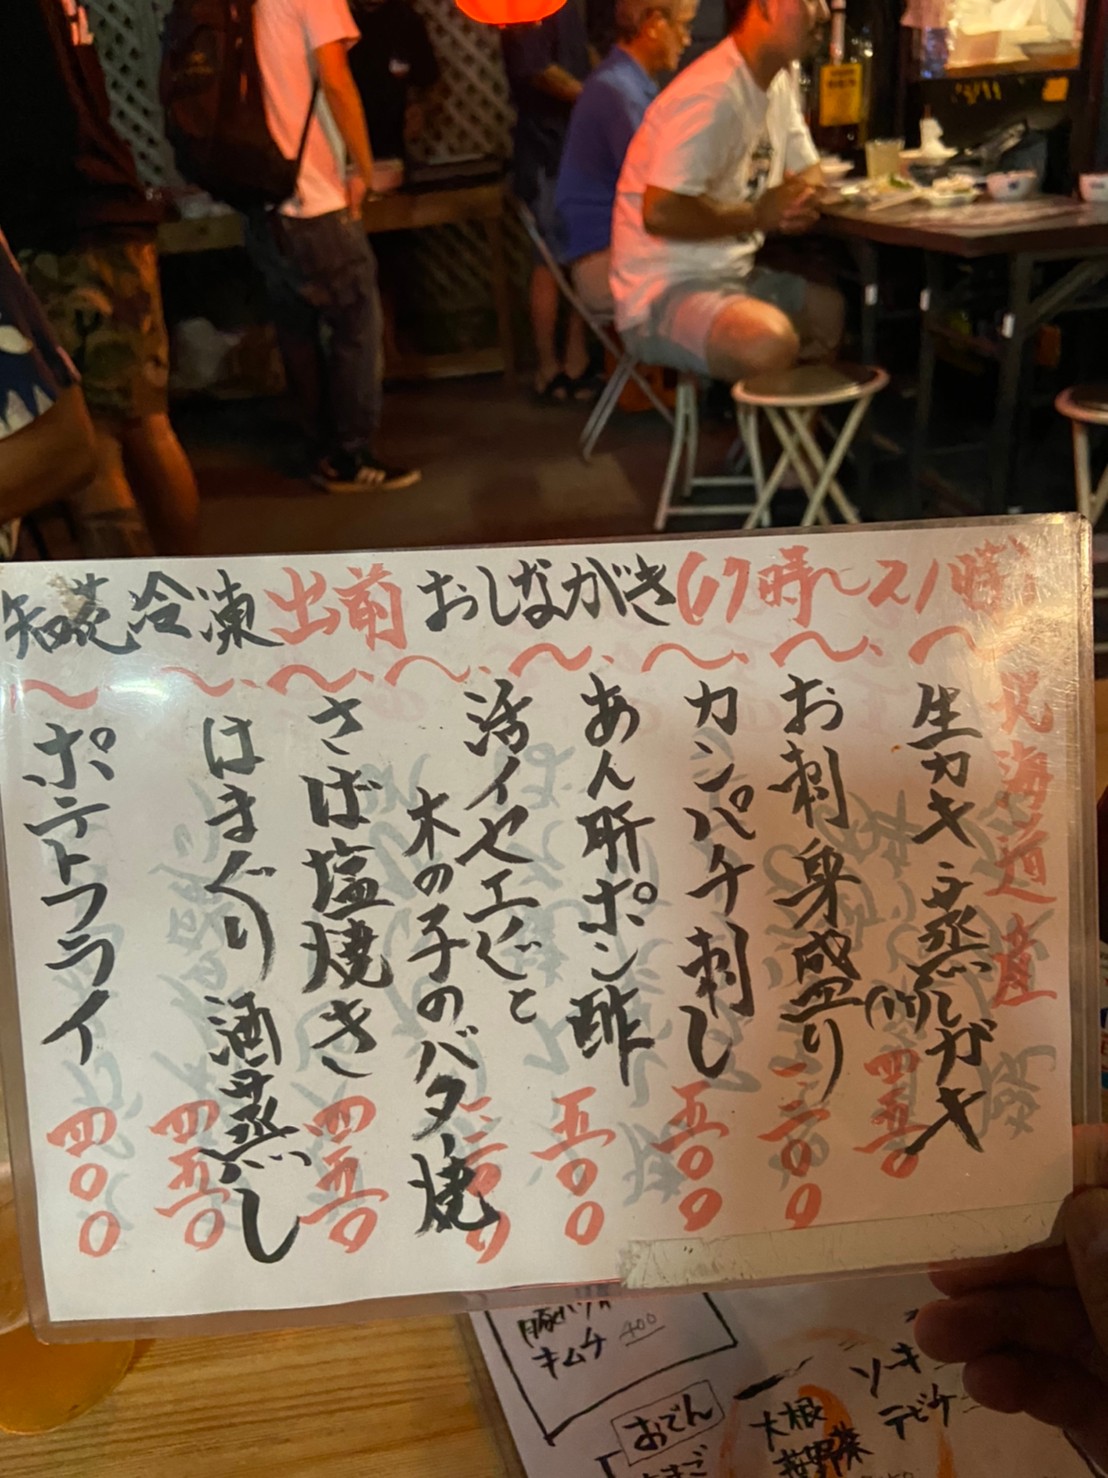 知花冷凍 出前 おしながき (17時〜21時)
北海道産
生カキ 蒸しガキ
四五〇
お刺身盛り
一二〇〇
カンパチ刺し
五〇〇
あん肝ポン酢
五〇〇
活イセエビと
木の子のバター焼
さば塩焼き
四五〇
はまぐり 酒蒸し
四五〇
ポテトフライ
四〇〇
キムチ 400
おでん
大根
ソーキ
テビチ